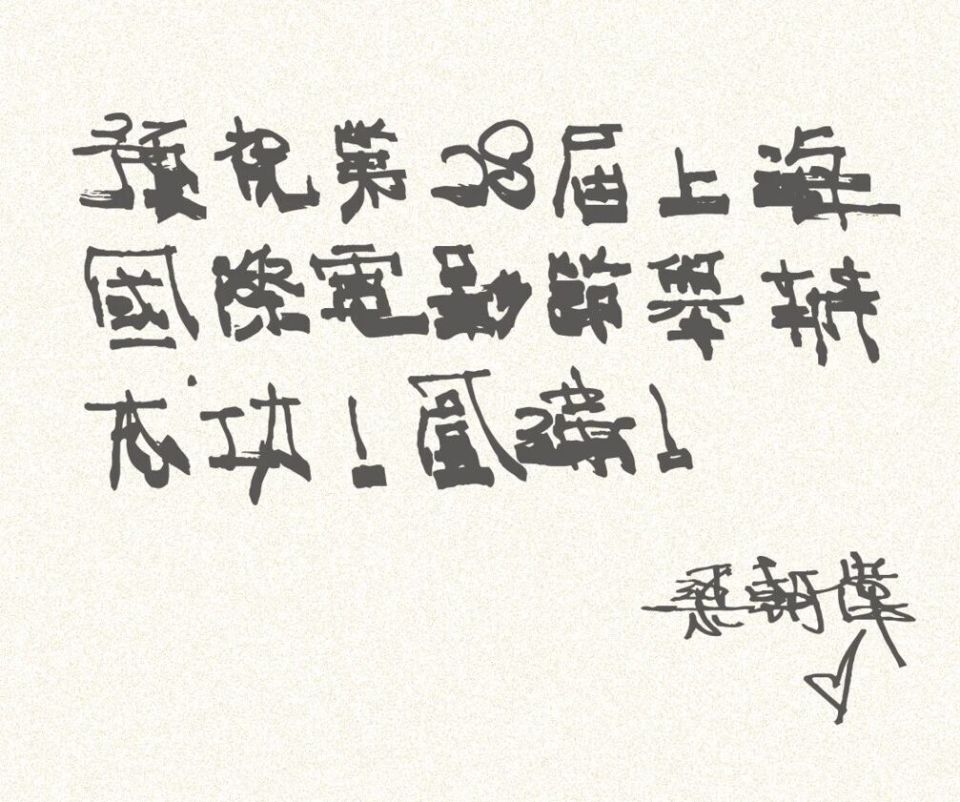 預祝第28屆上海
國際電影節舉辦
成功！圓滿！
梁朝偉